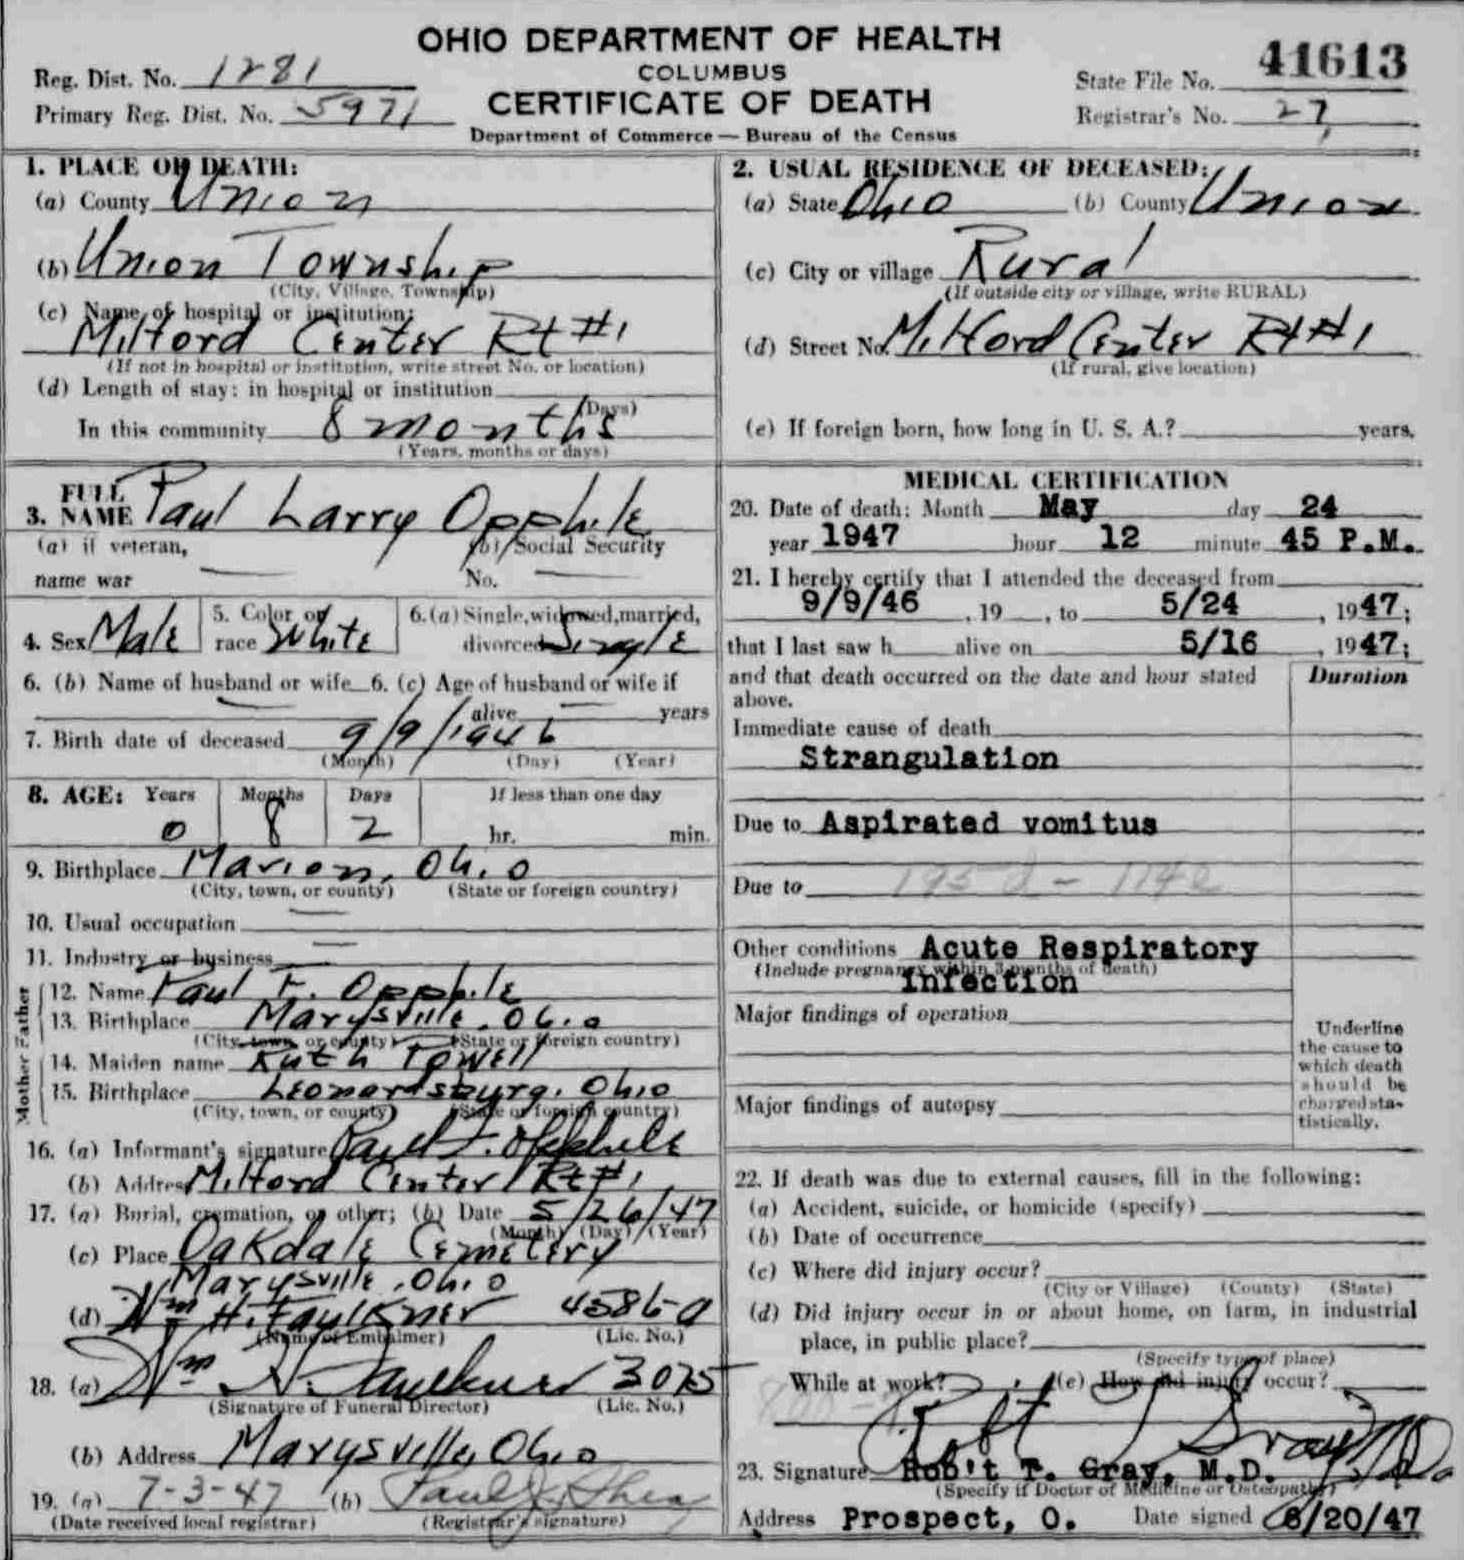 OHIO DEPARTMENT OF HEALTH
COLUMBUS
CERTIFICATE OF DEATH
Department of Commerce — Bureau of the Census
Reg. Dist. No. 1281
Primary Reg. Dist. No. 5971
State File No. 41613
Registrar's No. 27
1. PLACE OF DEATH:
(a) County Union
(b) Union Township
(City, Village, Township)
(c) Name of hospital or institution:
Milford Center Rt #1
(If not in hospital or institution, write street No. or location)
(d) Length of stay: in hospital or institution
(Days)
In this community 8 months
(Years, months or days)
2. USUAL RESIDENCE OF DECEASED:
(a) State Ohio (b) County Union
(c) City or village Rural
(If outside city or village, write RURAL)
(d) Street No. Milford Center Rt #1
(If rural, give location)
(e) If foreign born, how long in U. S. A.? years.
3. FULL NAME Paul Larry Opphile
(a) if veteran, name war — (b) Social Security No. —
4. Sex Male 5. Color or race White 6. (a) Single, widowed, married, divorced Single
6. (b) Name of husband or wife — 6. (c) Age of husband or wife if
alive — years
7. Birth date of deceased 9/9/1946
(Month) (Day) (Year)
8. AGE: Years Months Days If less than one day
0 8 2 hr. min.
9. Birthplace Marion, Ohio
(City, town, or county) (State or foreign country)
10. Usual occupation —
11. Industry or business —
Father
12. Name Paul F. Opphile
13. Birthplace Marysville, Ohio
(City, town, or county) (State or foreign country)
Mother
14. Maiden name Ruth Powell
15. Birthplace Leonardsburg, Ohio
(City, town, or county) (State or foreign country)
16. (a) Informant's signature Paul F. Opphile
(b) Address Milford Center Rt #1
17. (a) Burial, cremation, or other; (b) Date 5/26/47
(Month) (Day) (Year)
(c) Place Oakdale Cemetery
Marysville, Ohio
(d) Wm H. Faulkner 4586-a
(Name of Embalmer) (Lic. No.)
18. (a) Wm H. Faulkner 3075
(Signature of Funeral Director) (Lic. No.)
(b) Address Marysville, Ohio
19. (a) 7-3-47 (b) Paul
(Date received local registrar) (Registrar's signature)
MEDICAL CERTIFICATION
20. Date of death: Month May day 24
year 1947 hour 12 minute 45 P.M.
21. I hereby certify that I attended the deceased from
9/9/46, 19 , to 5/24, 1947;
that I last saw h alive on 5/16, 1947;
and that death occurred on the date and hour stated
above.
Duration
Immediate cause of death
Strangulation
Due to Aspirated vomitus
Due to
Other conditions Acute Respiratory
(Include pregnancy within 3 months of death)
Infection
Major findings of operation
Major findings of autopsy
Underline
the cause to
which death
should be
charged sta-
tistically.
22. If death was due to external causes, fill in the following:
(a) Accident, suicide, or homicide (specify)
(b) Date of occurrence
(c) Where did injury occur?
(City or Village) (County) (State)
(d) Did injury occur in or about home, on farm, in industrial
place, in public place?
(Specify type of place)
While at work? (e) How did injury occur?
Robt T Gray M.D.
23. Signature Rob't T. Gray, M.D.
(Specify if Doctor of Medicine or Osteopathy)
Address Prospect, O. Date signed 6/20/47